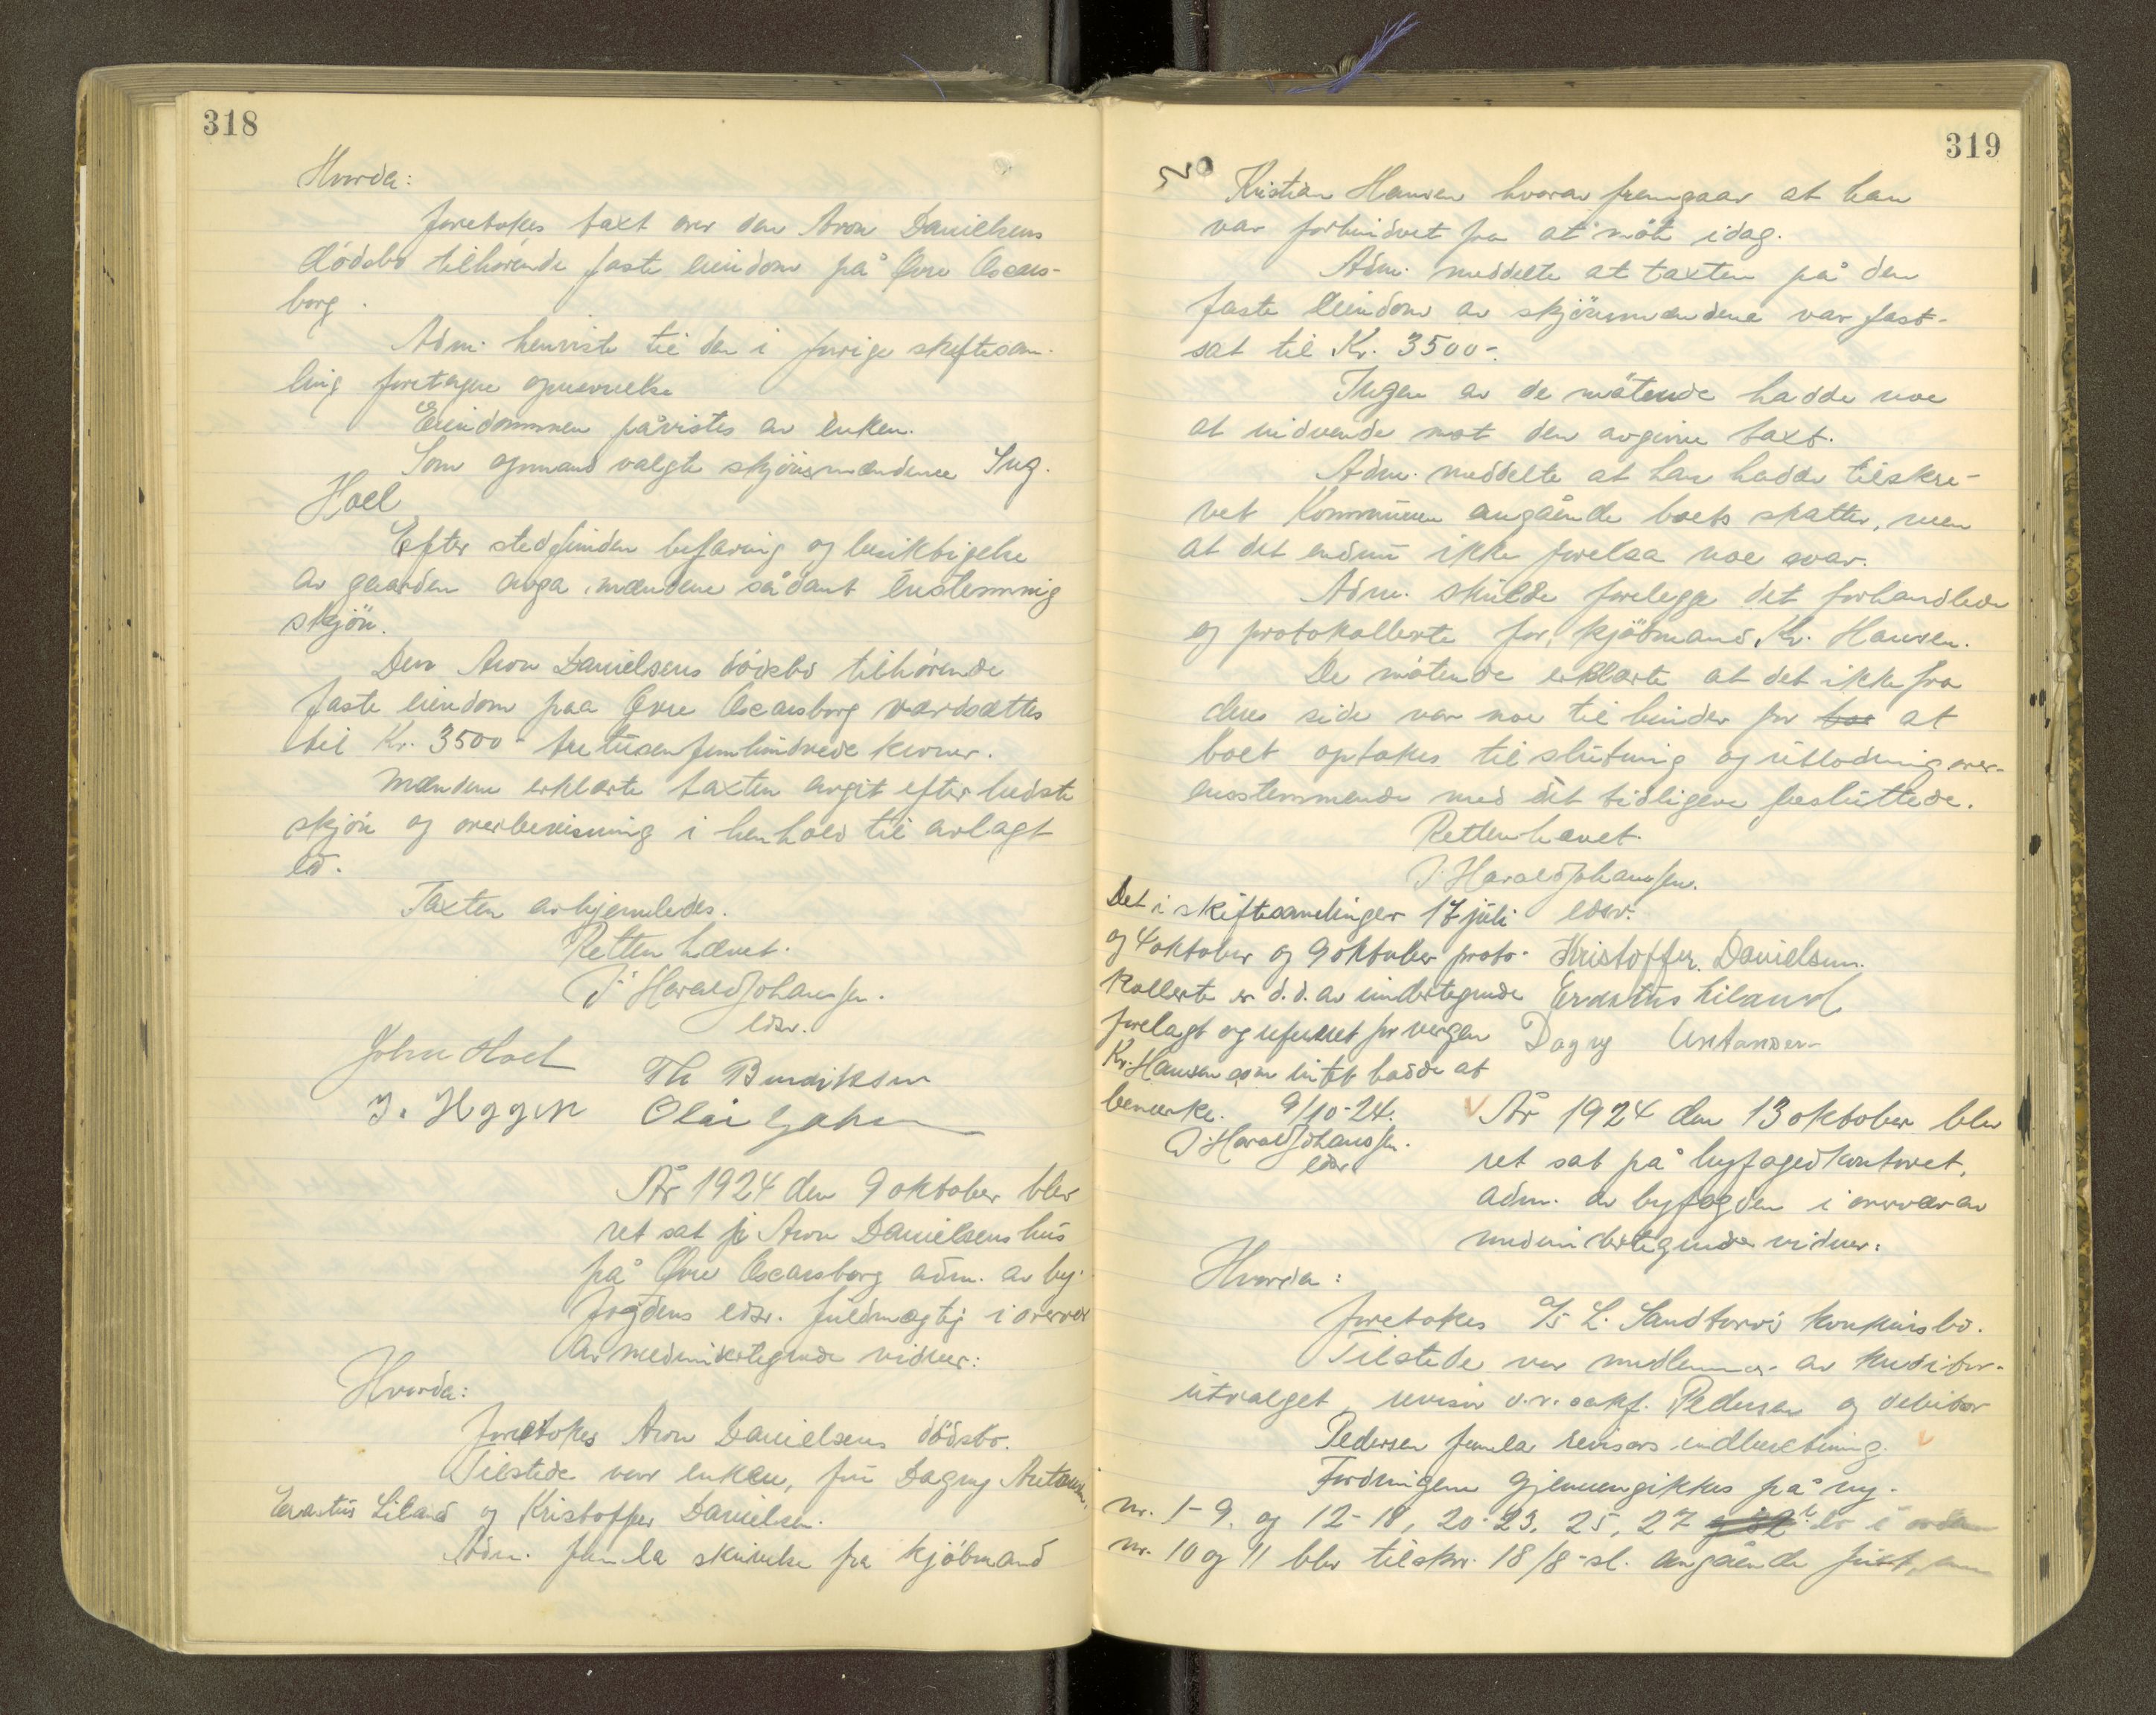 318
Hvorda:
foretokes taxt over den Aron Danielsens
dödsbo tilhörende faste eiendom på Övre Oscars-
borg.
Adm. henviste til den i forrige skiftesam-
ling foretagne opnevnelse
Eiendommen påvistes av enken.
Som opmand valgte skjönsmændene Ing.
Hoel
Efter stedfunden befaring og besiktigelse
av gaarden avga mændene sådant enstemmig
skjön.
Den Aron Danielsens dödsbo tilhörende
faste eiendom paa Övre Oscarsborg værdsættes
til Kr. 3500- tretusenfemhundrede kroner.
Mændene erklærte taxten avgit efter bedste
skjön og overbevisning i henhold til avlagt
ed.
Taxten avhjemledes.
Retten hævet.
J. Harald Johanssen.
edsv.
John Hoel
Th Bendiksen
J. Hggen
Olai
År 1924 den 9 oktober blev
ret sat i Aron Danielsens hus
på Övre Oscarsborg adm. av by-
fogdens edsv. fuldmægtig i overvær
av medundertegnede vidner:
Hvorda:
foretokes Aron Danielsens dödsbo.
Tilstede var enken, fru Dagny Antonsen,
Erastus Liland og Kristoffer Danielsen.
Adm. fremla skrivelse fra kjöbmand
319
Kristian Hansen hvorav fremgaar at han
var forhindret fra at möte idag.
Adm. meddelte at taxten på den
faste eiendom av skjönsmændene var fast-
sat til Kr. 3500-.
Ingen av de mötende hadde noe
at indvende mot den avgivne taxt.
Adm. meddelte at han hadde tilskre-
vet Kommunen angående boets skatter, men
at det endnu ikke forelaa noe svar.
Adm. skulde forelegge det forhandlede
og protokollerte for kjöbmand Kr. Hansen.
De mötende erklærte at det ikke fra
deres side var noe til hinder for at
boet optokes til slutning og utlodning over-
ensstemmende med det tidligere besluttede.
Retten hævet
J. Harald Johanssen.
edsv.
Kristoffer Danielsen.
Erastus Liland
Dagny Antonsen
Det i skiftesamlinger 17 juli
og 4 oktober og 9 oktober proto-
kollerte er d.d. av undertegnede
forelagt og referert for vergen
Kr. Hansen som intet hadde at
bemerke. 9/10-24.
J. Harald Johanssen.
edsv.
År 1924 den 13 oktober blev
ret sat på byfogedkontoret,
adm. av byfogden i overvær av
medundertegnede vidner:
Hvorda:
foretokes A/S L. Sandtorvs konkursbo.
Tilstede var medlemmer av kreditor-
utvalget, revisor o.r. sakf. Pedersen og debitor
Pedersen fremla revisors indberetning.
Fordringene gjennemgikkes på ny.
nr. 1-9. og 12-18, 20-23, 25, 27 er i orden
nr. 10 og 11 blev tilskr. 18/8-sl. angående